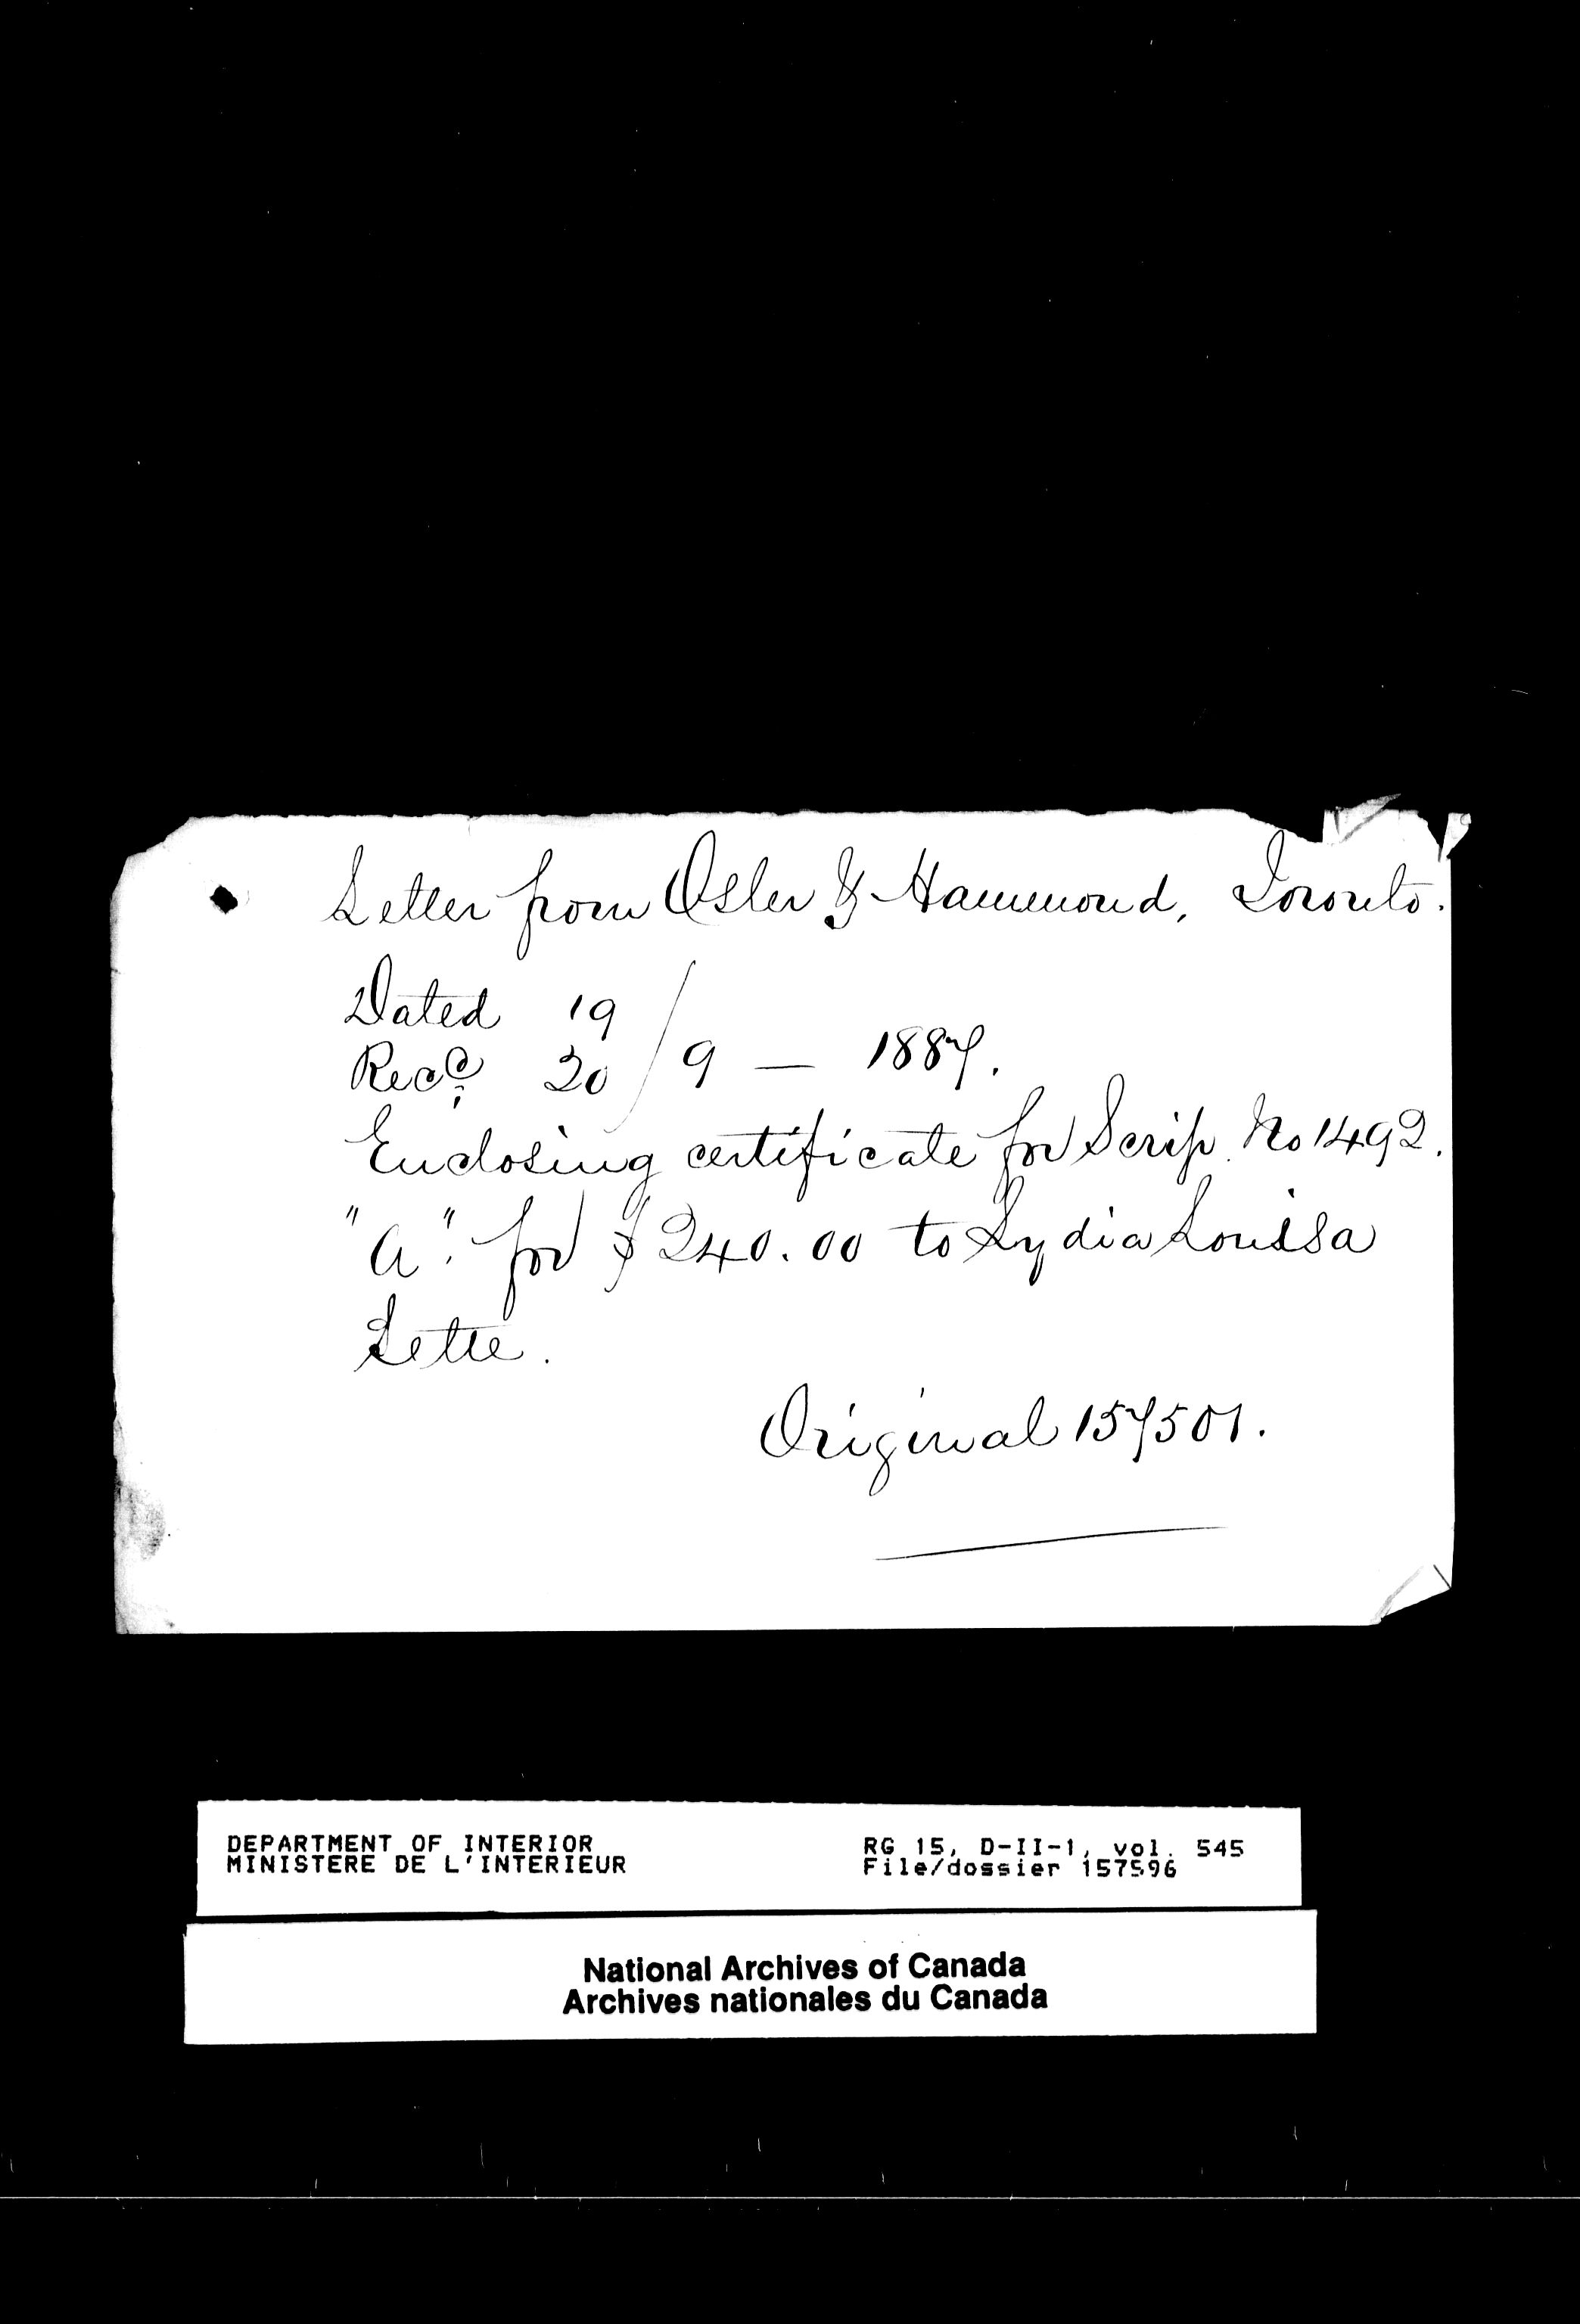 Letter from Osler & Hammond, Toronto.
Dated 19
Recd 20 / 9 — 1887.
Enclosing certificate for Scrip No 1492.
"A". for $240.00 to Lydia Louisa
Lette.
Original 157501.
DEPARTMENT OF INTERIOR
MINISTERE DE L'INTERIEUR
RG 15, D-II-1, vol. 545
File/dossier 157596
National Archives of Canada
Archives nationales du Canada